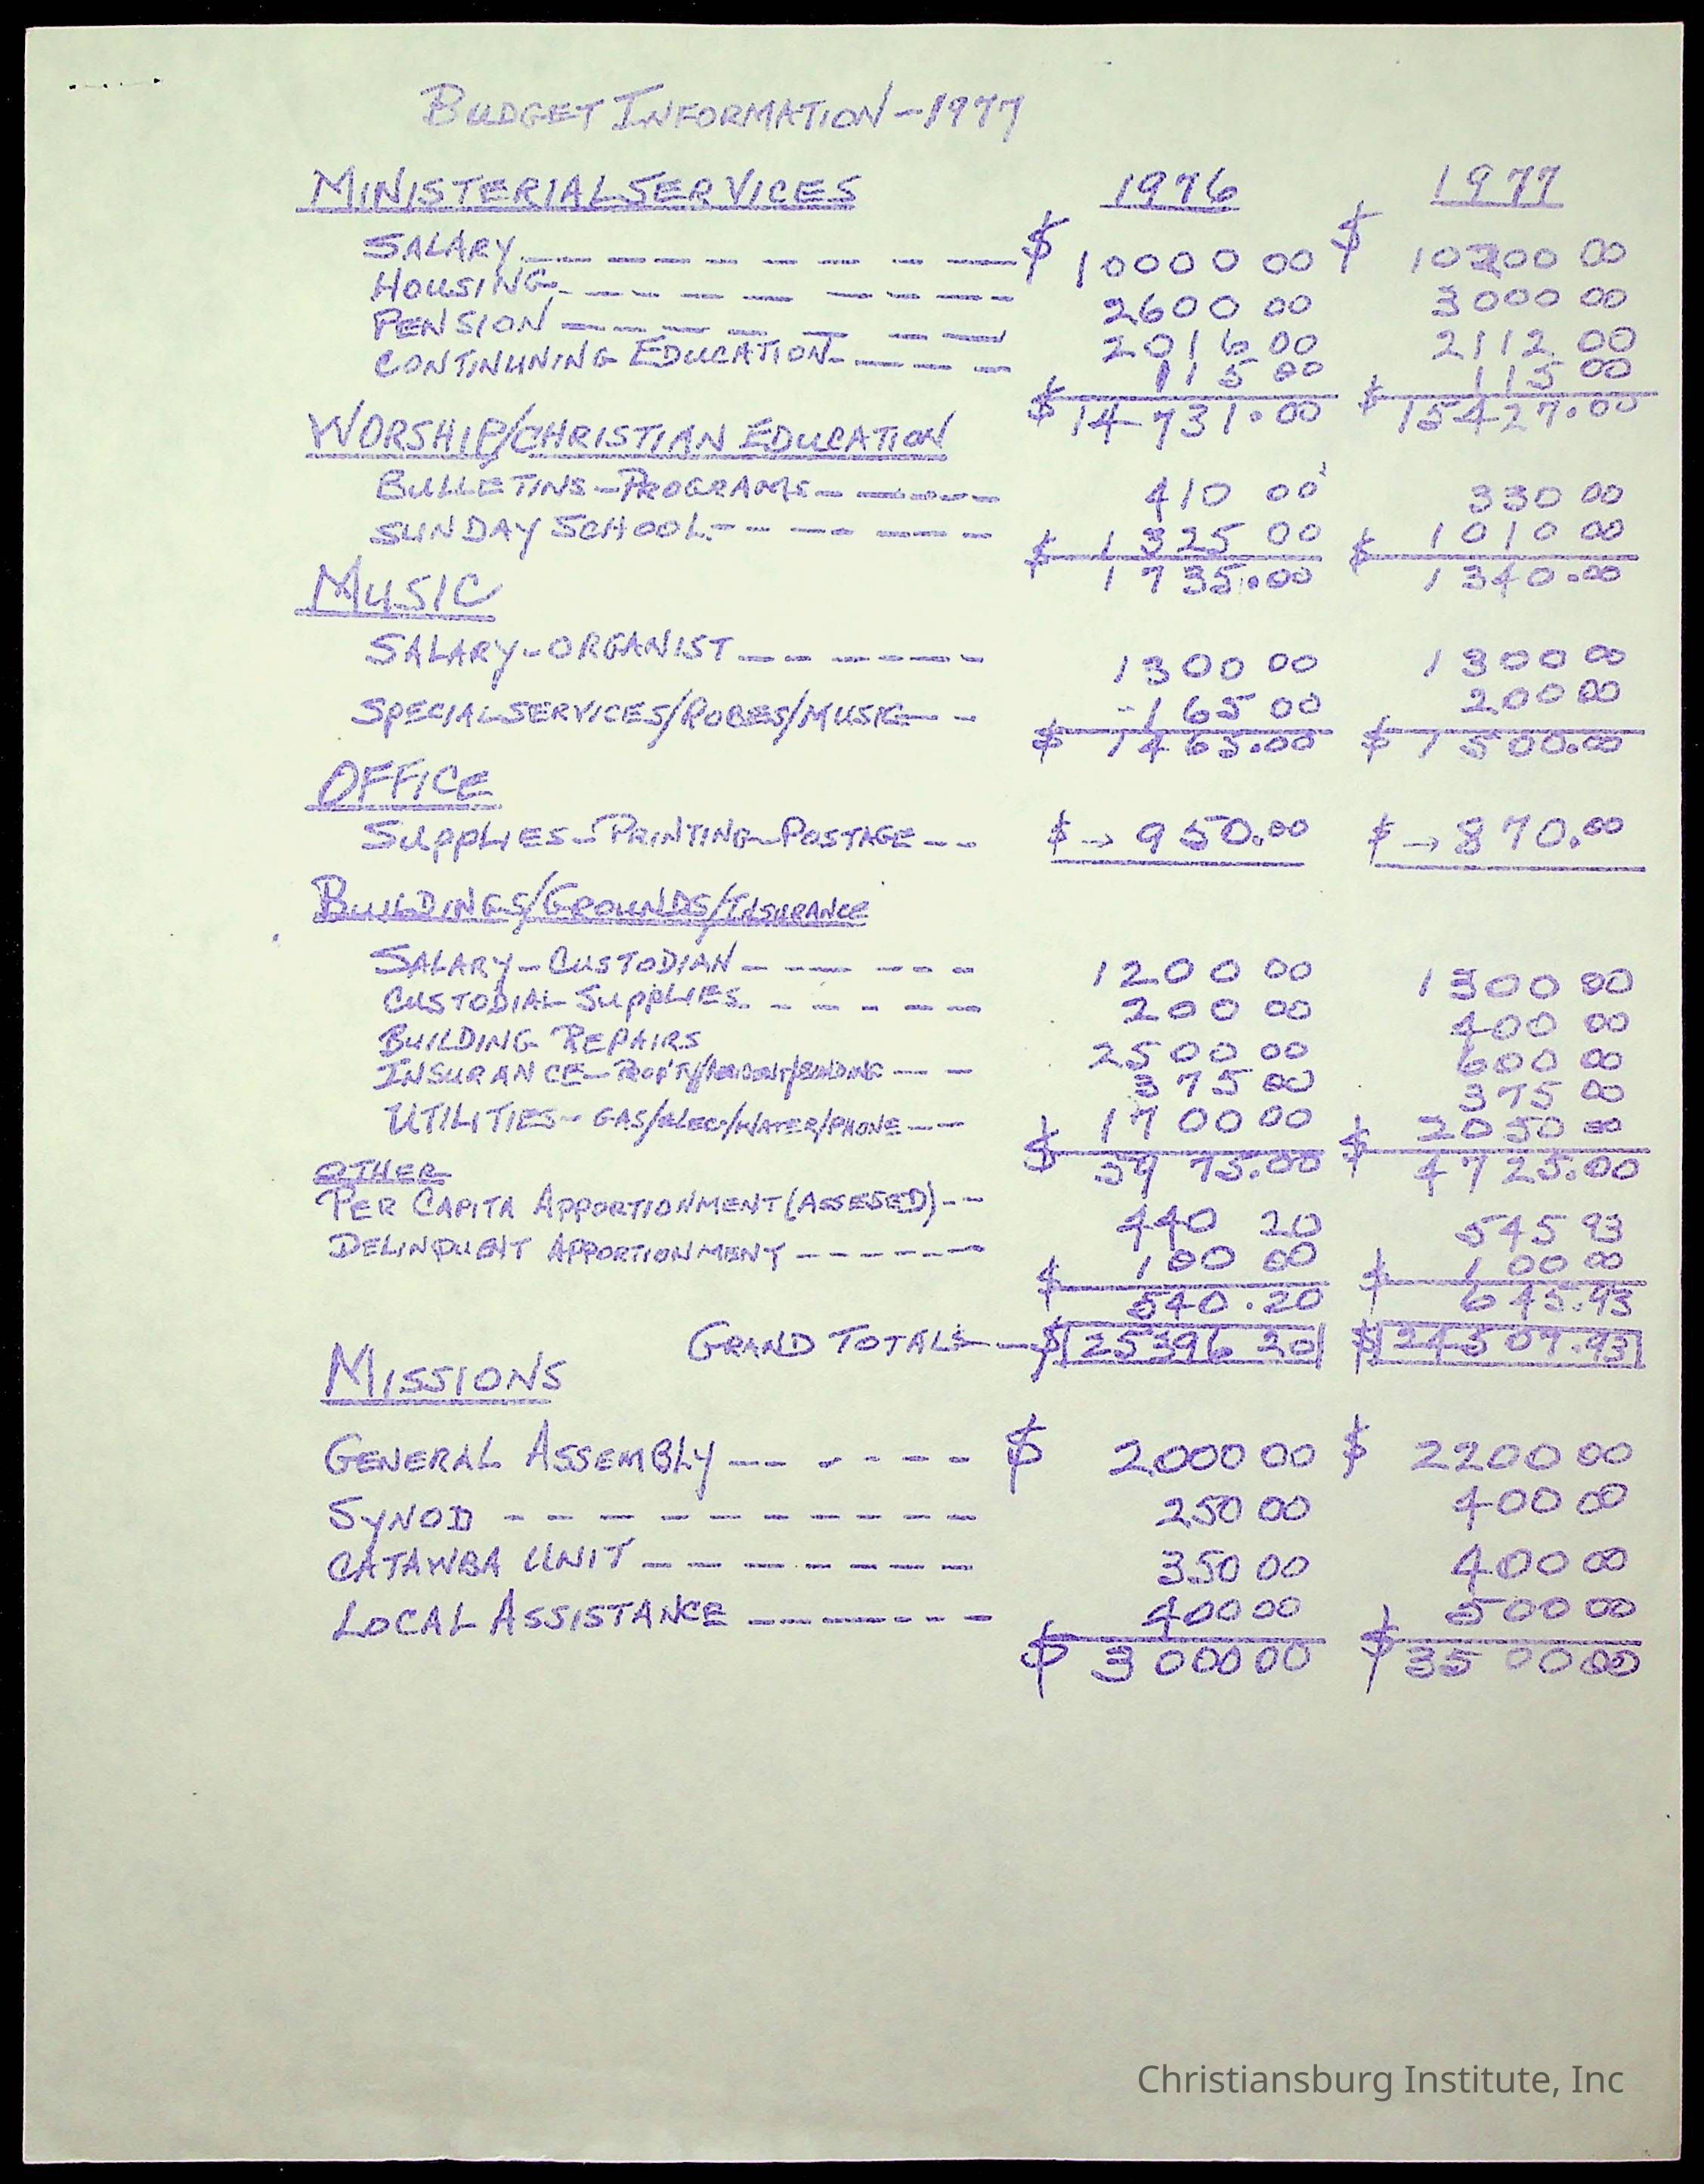 BUDGET INFORMATION-1977
MINISTERIAL SERVICES 1976 1977
SALARY $ 10000 00 $ 10200 00
HOUSING 2600 00 3000 00
PENSION 2016 00 2112 00
CONTINUNING EDUCATION 115 00 115 00
$ 14731.00 $ 15427.00
WORSHIP/CHRISTIAN EDUCATION
BULLETINS-PROGRAMS 410 00 330 00
SUNDAY SCHOOL $ 1325 00 $ 1010 00
1735.00 1340.00
MUSIC
SALARY-ORGANIST 1300 00 1300 00
SPECIAL SERVICES/ROBES/MUSIC 165 00 200 00
$ 1465.00 $ 1500.00
OFFICE
SUPPLIES-PRINTING-POSTAGE $ → 950.00 $ → 870.00
BUILDINGS/GROUNDS/INSURANCE
SALARY-CUSTODIAN 1200 00 1300 00
CUSTODIAL SUPPLIES 200 00 400 00
BUILDING REPAIRS 2500 00 600 00
INSURANCE- 375 00 375 00
UTILITIES- GAS/ELEC/WATER/PHONE $ 1700 00 $ 2050 00
5975.00 4725.00
OTHER
PER CAPITA APPORTIONMENT (ASSESED) 440 20 545 93
DELINQUENT APPORTIONMENT $ 100 00 $ 100 00
540.20 645.93
GRAND TOTALS $ 25396 20 $ 24507.93
MISSIONS
GENERAL ASSEMBLY $ 2000 00 $ 2200 00
SYNOD 250 00 400 00
CATAWBA UNIT 350 00 400 00
LOCAL ASSISTANCE 400 00 500 00
$ 3000 00 $ 3500 00
Christiansburg Institute, Inc